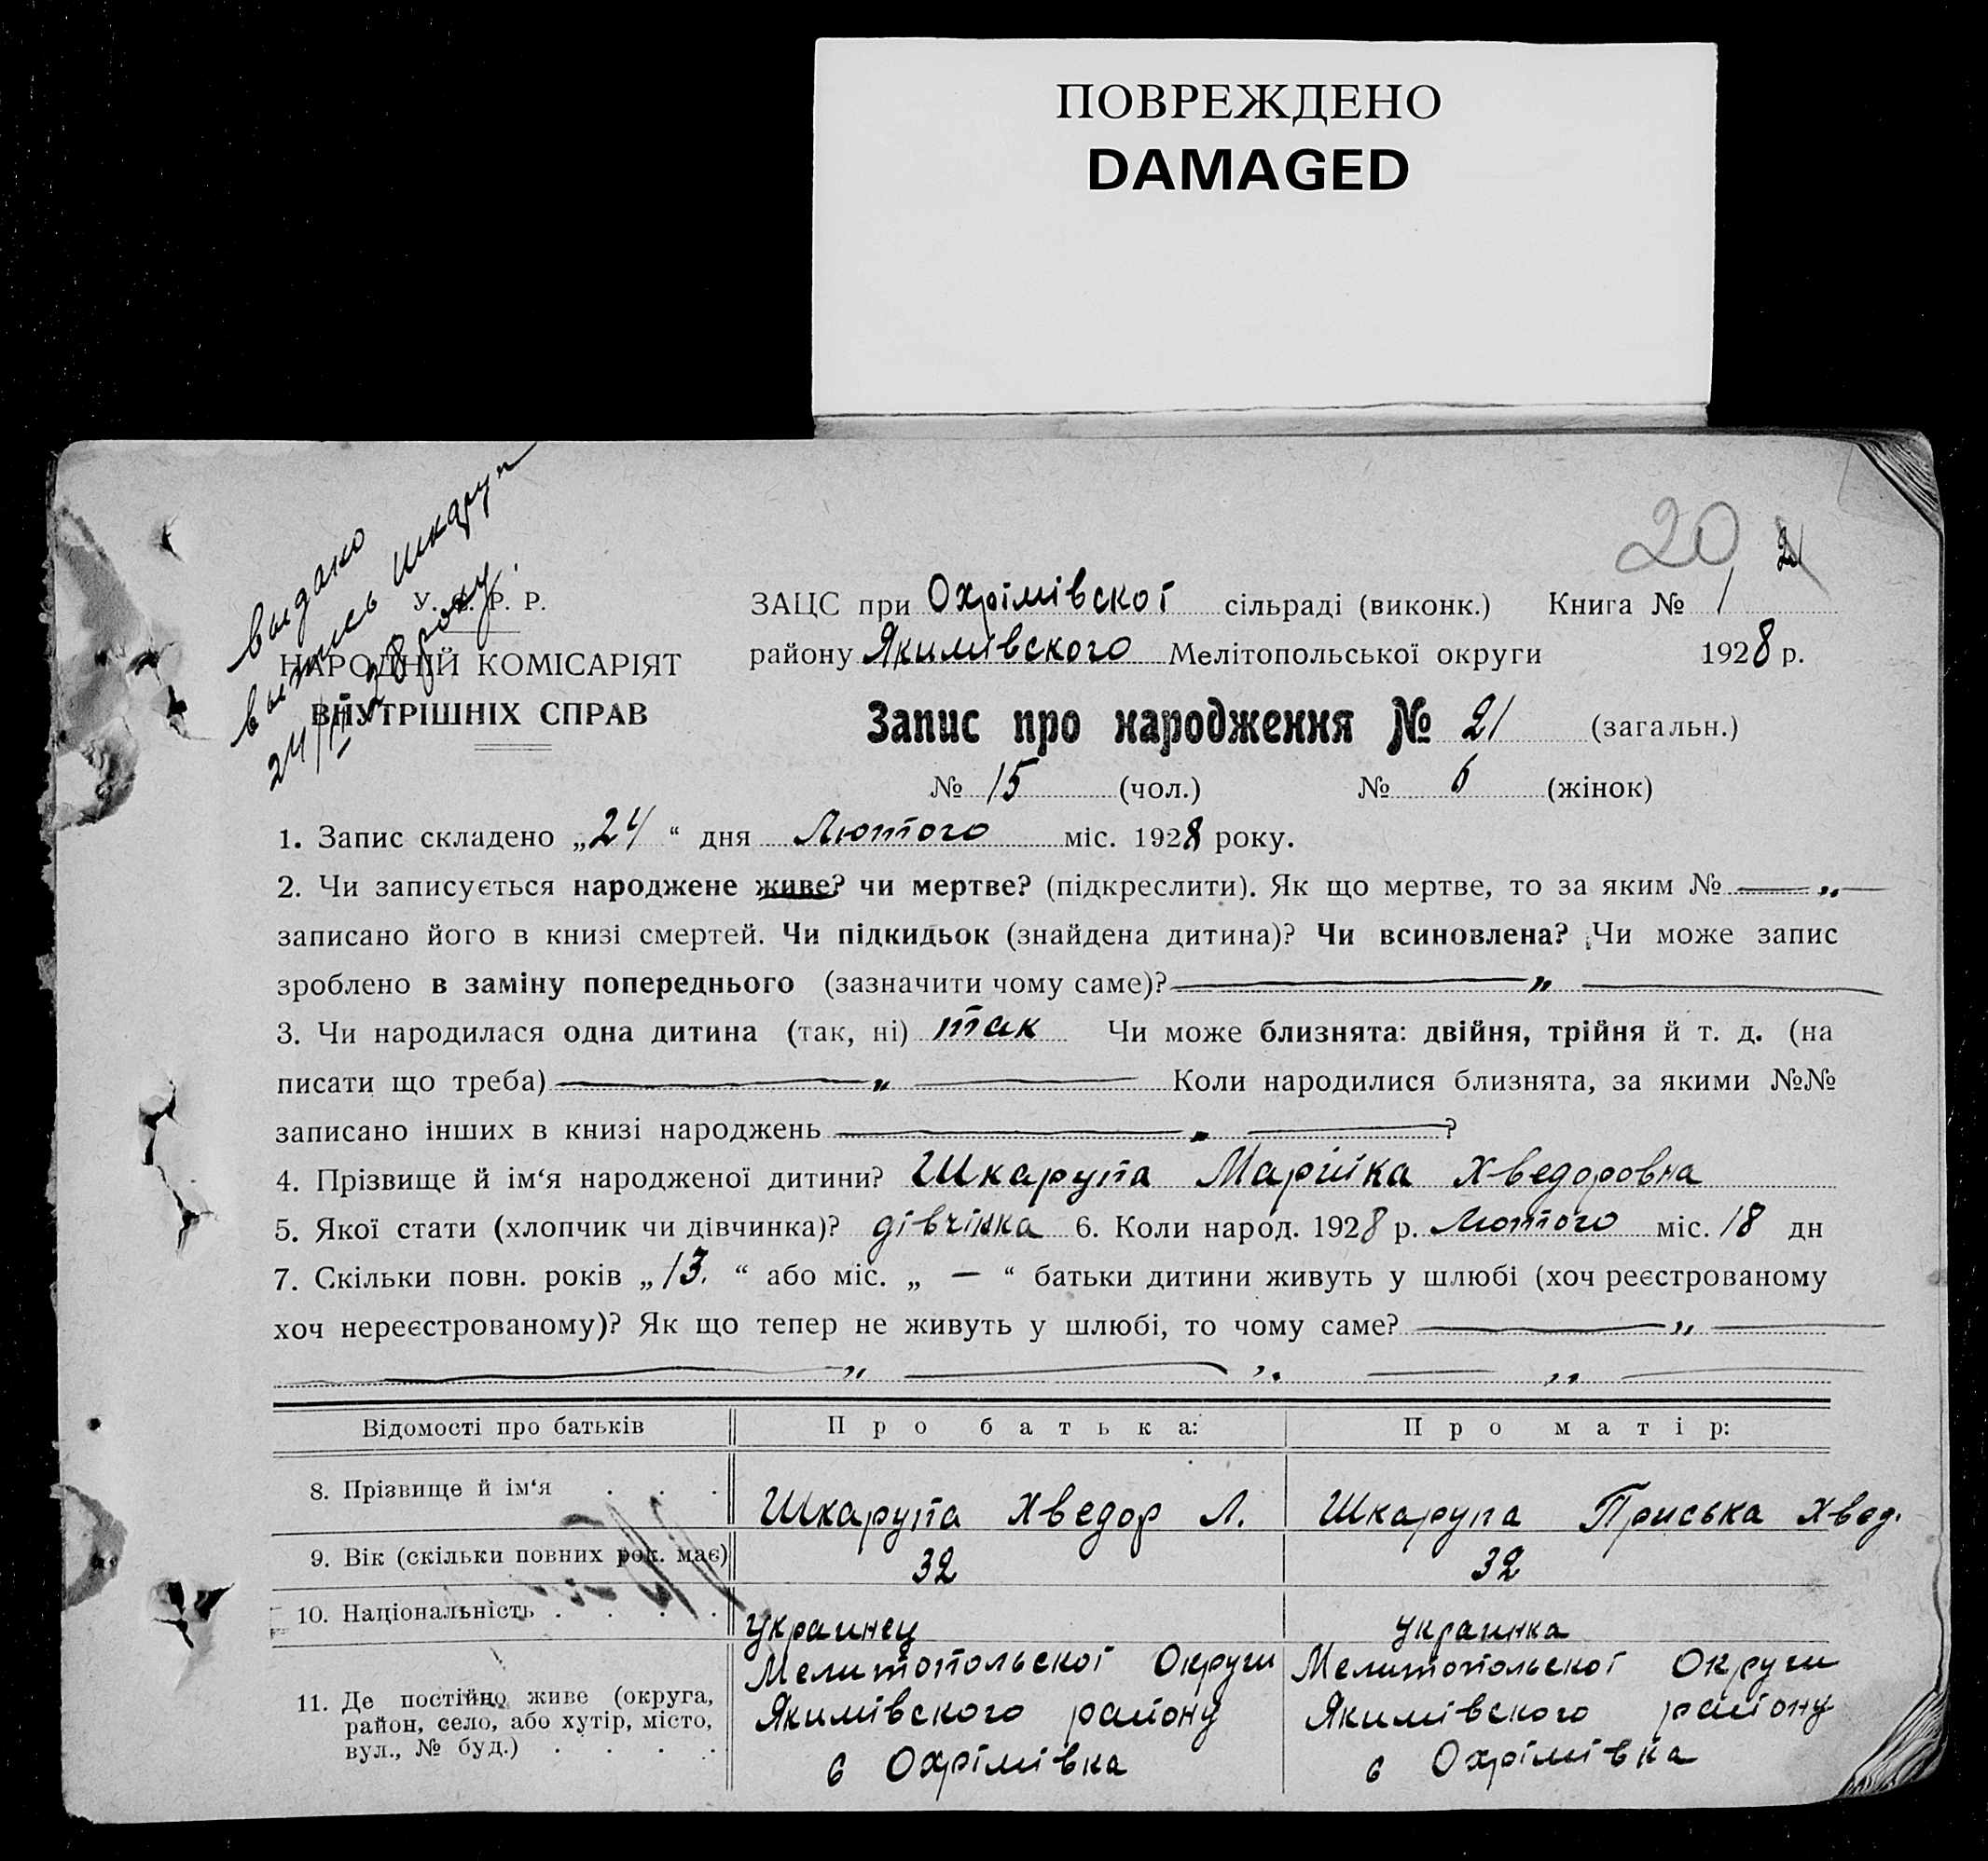 ПОВРЕЖДЕНО
DAMAGED
20 21
выдано
выпись Шкаруп
24/II 28 року.
У. С. Р. Р.
НАРОДНІЙ КОМІСАРІЯТ
ВНУТРІШНІХ СПРАВ
ЗАЦС при Охрімівскої сільраді (виконк.) Книга № 1
району Якимівского Мелітопольської округи 1928 р.
Запис про народження № 21 (загальн.)
№ 15 (чол.) № 6 (жінок)
1. Запис складено „24“ дня Лютого міс. 1928 року.
2. Чи записується народжене живе? чи мертве? (підкреслити). Як що мертве, то за яким № — „
записано його в книзі смертей. Чи підкидьок (знайдена дитина)? Чи всиновлена? Чи може запис
зроблено в заміну попереднього (зазначити чому саме)? — „ —
3. Чи народилася одна дитина (так, ні) так Чи може близнята: двійня, трійня й т. д. (на
писати що треба) — „ — Коли народилися близнята, за якими №№
записано інших в книзі народжень — „ — ?
4. Прізвище й ім‘я народженої дитини? Шкарупа Марійка Хведоровна
5. Якої стати (хлопчик чи дівчинка)? дівчінка 6. Коли народ. 1928 р. Лютого міс. 18 дн
7. Скільки повн. років „13.“ або міс. „ — “ батьки дитини живуть у шлюбі (хоч реєстрованому
хоч нереєстрованому)? Як що тепер не живуть у шлюбі, то чому саме? — „ —
— „ — „ — „ —
Відомості про батьків Про батька: Про матір:
8. Прізвище й ім‘я . . . Шкарупа Хведор Л. Шкарупа Приська Хвед.
9. Вік (скільки повних рок. має) 32 32
10. Національність . . . . украинец украинка
11. Де постійно живе (округа, район, село, або хутір, місто, вул., № буд.) . . . .
Мелитопольскої Округи
Якимівского району
с Охрімівка
Мелитопольскої Округи
Якимівского району
с Охрімівка